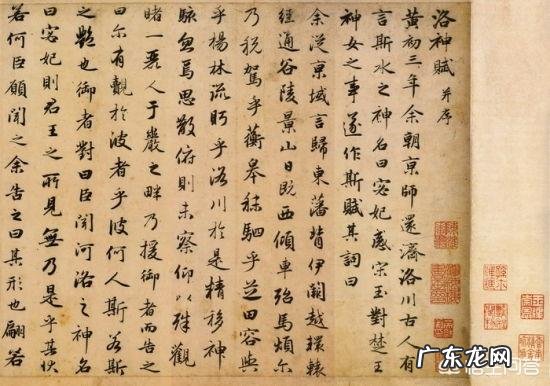 洛神賦 并序
黃初三年余朝京師還濟洛川古人有
言斯水之神名曰宓妃感宋玉對楚王
神女之事遂作斯賦其詞曰
余從京域言歸東藩背伊闕越轘轅
經通谷陵景山日既西傾車殆馬煩尔
乃稅駕乎蘅皋秣駟乎芝田容與
乎楊林流眄乎洛川於是精移神
駭忽焉思散俯則未察仰以殊觀
睹一麗人于巖之畔乃援御者而告之
曰尔有覿於彼者乎彼何人斯若斯
之艷也御者對曰臣聞河洛之神名
曰宓妃則君王之所見無乃是乎其狀
若何臣願聞之余告之曰其形也翩若
广东龙网